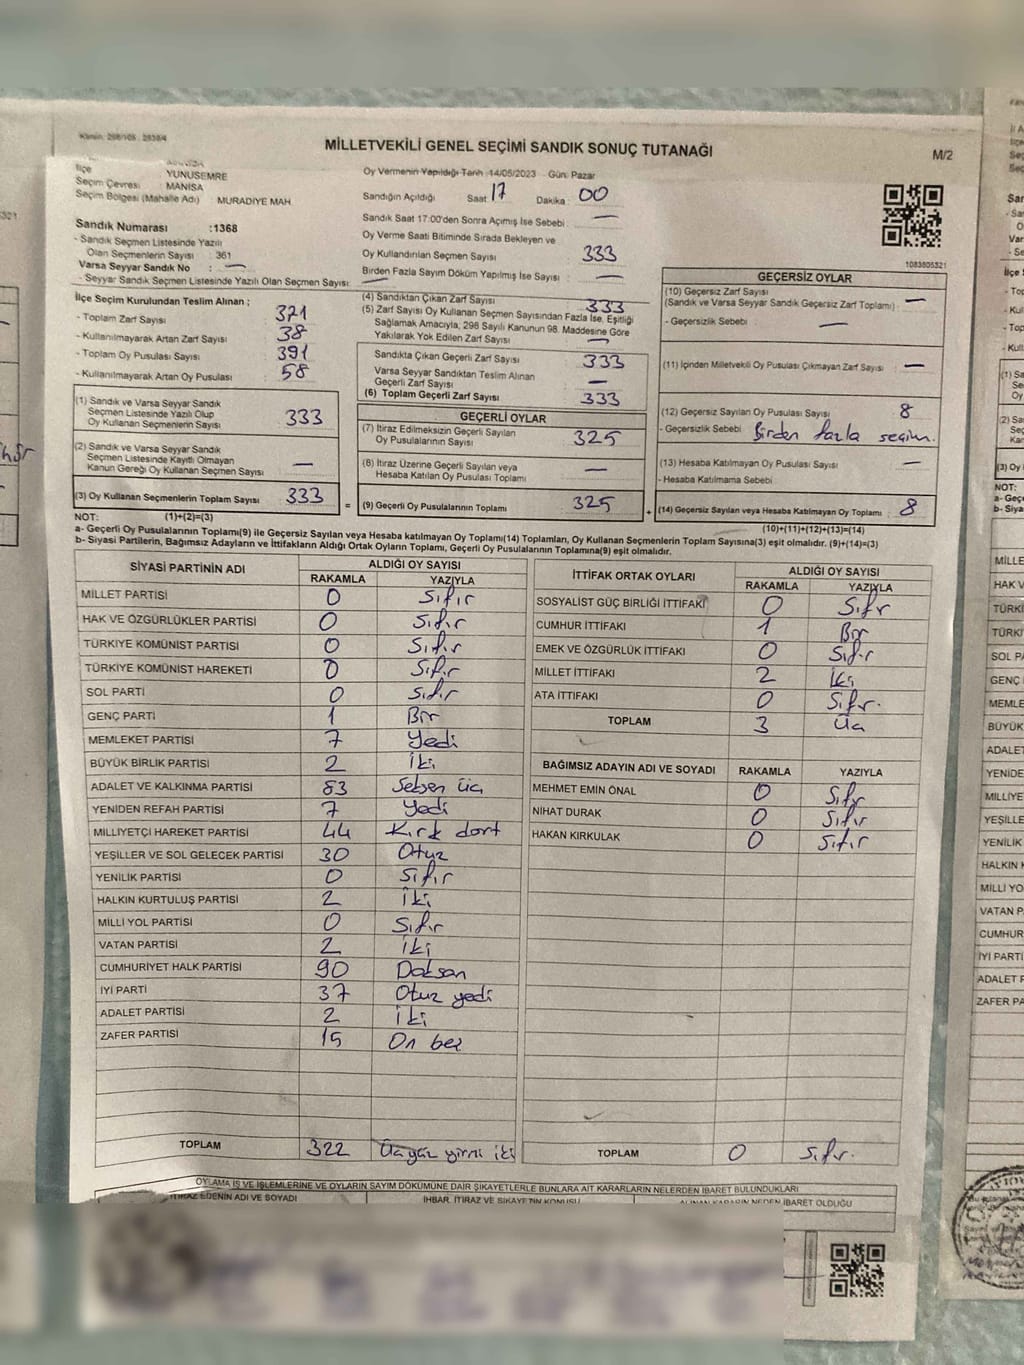 Kanun: 298/105 , 2839/4
MİLLETVEKİLİ GENEL SEÇİMİ SANDIK SONUÇ TUTANAĞI
M/2
İlçe YUNUSEMRE
Seçim Çevresi MANİSA
Seçim Bölgesi (Mahalle Adı) : MURADİYE MAH.
Oy Vermenin Yapıldığı Tarih 14/05/2023 Gün: Pazar
Sandığın Açıldığı Saat 17 Dakika : 00
Sandık Saat 17:00'den Sonra Açımış İse Sebebi : —
Oy Verme Saati Bitiminde Sırada Bekleyen ve
Oy Kullandırılan Seçmen Sayısı : 333
Birden Fazla Sayım Döküm Yapılmış İse Sayısı : —
Sandık Numarası :1368
- Sandık Seçmen Listesinde Yazılı
Olan Seçmenlerin Sayısı : 361
Varsa Seyyar Sandık No : —
- Seyyar Sandık Seçmen Listesinde Yazılı Olan Seçmen Sayısı: —
1083805321
İlçe Seçim Kurulundan Teslim Alınan ;
- Toplam Zarf Sayısı : 371
- Kullanılmayarak Artan Zarf Sayısı : 38
- Toplam Oy Pusulası Sayısı : 391
- Kullanılmayarak Artan Oy Pusulası : 58
(1) Sandık ve Varsa Seyyar Sandık
Seçmen Listesinde Yazılı Olup
Oy Kullanan Seçmenlerin Sayısı : 333
(2) Sandık ve Varsa Seyyar Sandık
Seçmen Listesinde Kayıtlı Olmayan
Kanun Gereği Oy Kullanan Seçmen Sayısı : —
(3) Oy Kullanan Seçmenlerin Toplam Sayısı : 333
(4) Sandıktan Çıkan Zarf Sayısı : 333
(5) Zarf Sayısı Oy Kullanan Seçmen Sayısından Fazla İse, Eşitliği
Sağlamak Amacıyla, 298 Sayılı Kanunun 98. Maddesine Göre
Yakılarak Yok Edilen Zarf Sayısı : —
Sandıkta Çıkan Geçerli Zarf Sayısı : 333
Varsa Seyyar Sandıktan Teslim Alınan
Geçerli Zarf Sayısı : —
(6) Toplam Geçerli Zarf Sayısı : 333
GEÇERLİ OYLAR
(7) İtiraz Edilmeksizin Geçerli Sayılan
Oy Pusulalarının Sayısı : 325
(8) İtiraz Üzerine Geçerli Sayılan veya
Hesaba Katılan Oy Pusulası Toplamı : —
= (9) Geçerli Oy Pusulalarının Toplamı : 325
GEÇERSİZ OYLAR
(10) Geçersiz Zarf Sayısı
(Sandık ve Varsa Seyyar Sandık Geçersiz Zarf Toplamı) : —
- Geçersizlik Sebebi : —
(11) İçinden Milletvekili Oy Pusulası Çıkmayan Zarf Sayısı : —
(12) Geçersiz Sayılan Oy Pusulası Sayısı : 8
- Geçersizlik Sebebi : Birden fazla seçim.
(13) Hesaba Katılmayan Oy Pusulası Sayısı : —
- Hesaba Katılmama Sebebi :
+ (14) Geçersiz Sayılan veya Hesaba Katılmayan Oy Toplamı : 8
NOT: (1)+(2)=(3) (10)+(11)+(12)+(13)=(14)
a- Geçerli Oy Pusulalarının Toplamı(9) ile Geçersiz Sayılan veya Hesaba Katılmayan Oy Toplamı(14) Toplamları, Oy Kullanan Seçmenlerin Toplam Sayısına(3) eşit olmalıdır. (9)+(14)=(3)
b- Siyasi Partilerin, Bağımsız Adayların ve İttifakların Aldığı Ortak Oyların Toplamı, Geçerli Oy Pusulalarının Toplamına(9) eşit olmalıdır.
SİYASİ PARTİNİN ADI ALDIĞI OY SAYISI
RAKAMLA YAZIYLA
MİLLET PARTİSİ 0 Sıfır
HAK VE ÖZGÜRLÜKLER PARTİSİ 0 Sıfır
TÜRKİYE KOMÜNİST PARTİSİ 0 Sıfır
TÜRKİYE KOMÜNİST HAREKETİ 0 Sıfır
SOL PARTİ 0 Sıfır
GENÇ PARTİ 1 Bir
MEMLEKET PARTİSİ 7 Yedi
BÜYÜK BİRLİK PARTİSİ 2 İki
ADALET VE KALKINMA PARTİSİ 83 Seksen üç
YENİDEN REFAH PARTİSİ 7 Yedi
MİLLİYETÇİ HAREKET PARTİSİ 44 Kırk dört
YEŞİLLER VE SOL GELECEK PARTİSİ 30 Otuz
YENİLİK PARTİSİ 0 Sıfır
HALKIN KURTULUŞ PARTİSİ 2 İki
MİLLİ YOL PARTİSİ 0 Sıfır
VATAN PARTİSİ 2 İki
CUMHURİYET HALK PARTİSİ 90 Doksan
İYİ PARTİ 37 Otuz yedi
ADALET PARTİSİ 2 İki
ZAFER PARTİSİ 15 On beş
TOPLAM 322 Üçyüz yirmi iki
İTTİFAK ORTAK OYLARI ALDIĞI OY SAYISI
RAKAMLA YAZIYLA
SOSYALİST GÜÇ BİRLİĞİ İTTİFAKI 0 Sıfır
CUMHUR İTTİFAKI 1 Bir
EMEK VE ÖZGÜRLÜK İTTİFAKI 0 Sıfır
MİLLET İTTİFAKI 2 İki
ATA İTTİFAKI 0 Sıfır.
TOPLAM 3 Üç
BAĞIMSIZ ADAYIN ADI VE SOYADI RAKAMLA YAZIYLA
MEHMET EMİN ÖNAL 0 Sıfır
NİHAT DURAK 0 Sıfır
HAKAN KIRKULAK 0 Sıfır
TOPLAM 0 Sıfır.
OYLAMA İŞ VE İŞLEMLERİNE VE OYLARIN SAYIM DÖKÜMÜNE DAİR ŞİKAYETLERLE BUNLARA AİT KARARLARIN NELERDEN İBARET BULUNDUKLARI
İTİRAZ EDENİN ADI VE SOYADI İHBAR, İTİRAZ VE ŞİKAYETİN KONUSU ALINAN KARARIN NEDEN İBARET OLDUĞU